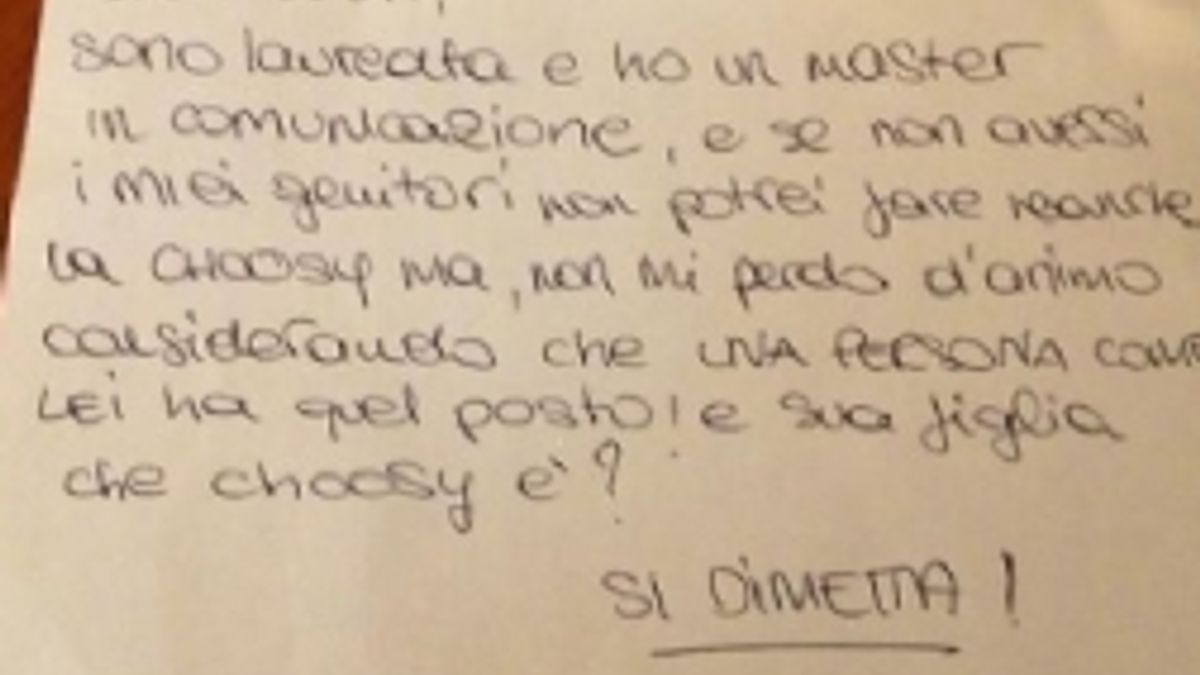 sono laureata e ho un master
in comunicazione, e se non avessi
i miei genitori non potrei fare neanche
la CHOOSY ma, non mi perdo d'animo
considerando che UNA PERSONA COME
LEI ha quel posto! e sua figlia
che choosy è?
SI DIMETTA!